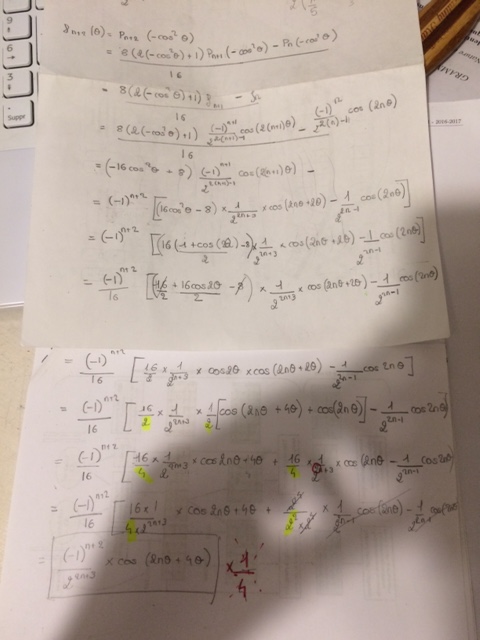 g_{n+2}(θ) = P_{n+2}(-cos²θ)
= 8(2(-cos²θ)+1) P_{n+1}(-cos²θ) - P_n(-cos²θ)
16
= 8(2(-cos²θ)+1) g_{n+1} - g_n
16
= 8(2(-cos²θ)+1) (-1)^{n+1}/2^{2(n+1)-1} cos(2(n+1)θ) - (-1)^{n}/2^{2(n)-1} cos(2nθ)
16
= (-16cos²θ + 8) (-1)^{n+1}/2^{2(n+1)-1} cos(2(n+1)θ) -
= (-1)^{n+2} [(16cos²θ - 8) × 1/2^{2n+3} × cos(2nθ+2θ) - 1/2^{2n-1} cos(2nθ)]
= (-1)^{n+2} [(16(1+cos(2θ))/2 - 8) × 1/2^{2n+3} × cos(2nθ+2θ) - 1/2^{2n-1} cos(2nθ)]
= (-1)^{n+2}/16 [(16/2 + 16cos2θ/2 - 8) × 1/2^{2n+3} × cos(2nθ+2θ) - 1/2^{2n-1} cos(2nθ)]
= (-1)^{n+2}/16 [16/2 × 1/2^{2n+3} × cos2θ × cos(2nθ+2θ) - 1/2^{2n-1} cos2nθ]
= (-1)^{n+2}/16 [16/2 × 1/2^{2n+3} × 1/2 [cos(2nθ+4θ) + cos(2nθ)] - 1/2^{2n-1} cos2nθ)
= (-1)^{n+2}/16 [16/4 × 1/2^{2n+3} × cos2nθ+4θ + 16/4 × 1/2^{2n+3} × cos(2nθ - 1/2^{2n-1} cos2nθ)
= (-1)^{n+2}/16 [16×1/4×2^{2n+3} × cos2nθ+4θ + × 1/2^{2n-1} cos(2nθ) - 1/2^{2n-1} cos(2nθ
= (-1)^{n+2}/2^{2n+3} × cos(2nθ+4θ) × 1/4
2016-2017
Suppr